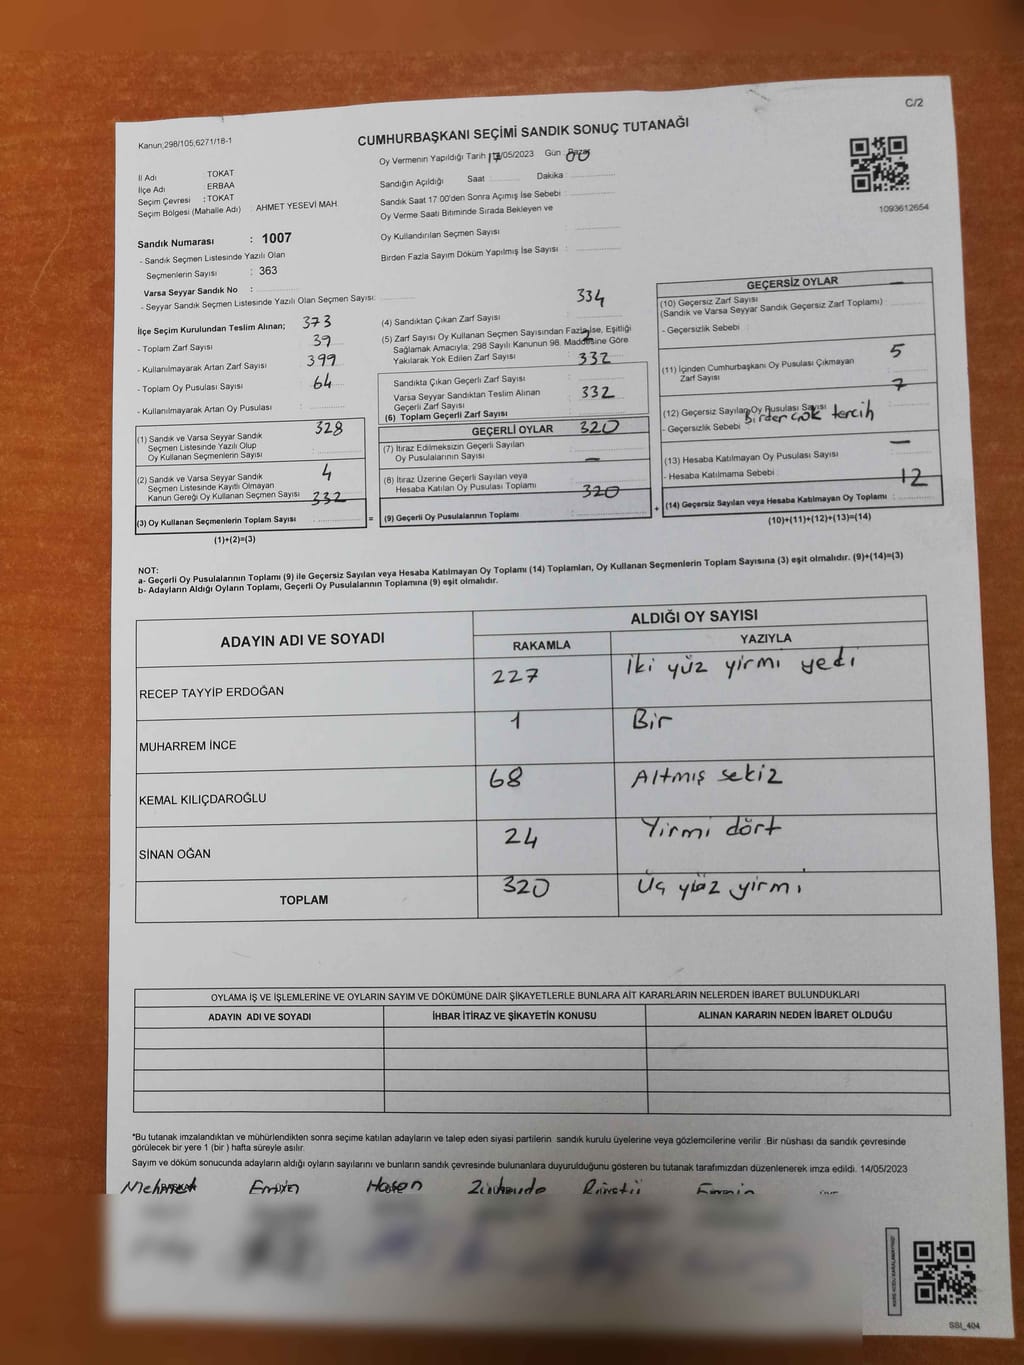 C/2
Kanun,298/105,6271/18-1
CUMHURBAŞKANI SEÇİMİ SANDIK SONUÇ TUTANAĞI
İl Adı : TOKAT
İlçe Adı : ERBAA
Seçim Çevresi : TOKAT
Seçim Bölgesi (Mahalle Adı) : AHMET YESEVİ MAH.
Sandık Numarası : 1007
- Sandık Seçmen Listesinde Yazılı Olan
Seçmenlerin Sayısı : 363
Varsa Seyyar Sandık No :
- Seyyar Sandık Seçmen Listesinde Yazılı Olan Seçmen Sayısı:
Oy Vermenin Yapıldığı Tarih /05/2023 Gün :
Sandığın Açıldığı Saat Dakika
Sandık Saat 17.00'den Sonra Açımış İse Sebebi
Oy Verme Saati Bitiminde Sırada Bekleyen ve
Oy Kullandırılan Seçmen Sayısı :
Birden Fazla Sayım Döküm Yapılmış İse Sayısı :
1093612654
İlçe Seçim Kurulundan Teslim Alınan; 373
- Toplam Zarf Sayısı 39
- Kullanılmayarak Artan Zarf Sayısı 399
- Toplam Oy Pusulası Sayısı 64
- Kullanılmayarak Artan Oy Pusulası
328
(1) Sandık ve Varsa Seyyar Sandık
Seçmen Listesinde Yazılı Olup
Oy Kullanan Seçmenlerin Sayısı
4
(2) Sandık ve Varsa Seyyar Sandık
Seçmen Listesinde Kayıtlı Olmayan
Kanun Gereği Oy Kullanan Seçmen Sayısı 332
(3) Oy Kullanan Seçmenlerin Toplam Sayısı =
(1)+(2)=(3)
334
(4) Sandıktan Çıkan Zarf Sayısı :
(5) Zarf Sayısı Oy Kullanan Seçmen Sayısından Fazla İse, Eşitliği 2
Sağlamak Amacıyla, 298 Sayılı Kanunun 98. Maddesine Göre
Yakılarak Yok Edilen Zarf Sayısı 332
Sandıkta Çıkan Geçerli Zarf Sayısı
Varsa Seyyar Sandıktan Teslim Alınan 332
Geçerli Zarf Sayısı
(6) Toplam Geçerli Zarf Sayısı
GEÇERLİ OYLAR 320
(7) İtiraz Edilmeksizin Geçerli Sayılan
Oy Pusulalarının Sayısı
—
(8) İtiraz Üzerine Geçerli Sayılan veya
Hesaba Katılan Oy Pusulası Toplamı 320
(9) Geçerli Oy Pusulalarının Toplamı +
GEÇERSİZ OYLAR —
(10) Geçersiz Zarf Sayısı
(Sandık ve Varsa Seyyar Sandık Geçersiz Zarf Toplamı)
- Geçersizlik Sebebi :
5
(11) İçinden Cumhurbaşkanı Oy Pusulası Çıkmayan
Zarf Sayısı 7
(12) Geçersiz Sayılan Oy Pusulası Sayısı
- Geçersizlik Sebebi Birden çok tercih
—
(13) Hesaba Katılmayan Oy Pusulası Sayısı
- Hesaba Katılmama Sebebi : 12
(14) Geçersiz Sayılan veya Hesaba Katılmayan Oy Toplamı :
(10)+(11)+(12)+(13)=(14)
NOT:
a- Geçerli Oy Pusulalarının Toplamı (9) ile Geçersiz Sayılan veya Hesaba Katılmayan Oy Toplamı (14) Toplamları, Oy Kullanan Seçmenlerin Toplam Sayısına (3) eşit olmalıdır. (9)+(14)=(3)
b- Adayların Aldığı Oyların Toplamı, Geçerli Oy Pusulalarının Toplamına (9) eşit olmalıdır.
ADAYIN ADI VE SOYADI ALDIĞI OY SAYISI
RAKAMLA YAZIYLA
RECEP TAYYİP ERDOĞAN 227 İki yüz yirmi yedi
MUHARREM İNCE 1 Bir
KEMAL KILIÇDAROĞLU 68 Altmış sekiz
SİNAN OĞAN 24 Yirmi dört
TOPLAM 320 Üç yüz yirmi
OYLAMA İŞ VE İŞLEMLERİNE VE OYLARIN SAYIM VE DÖKÜMÜNE DAİR ŞİKAYETLERLE BUNLARA AİT KARARLARIN NELERDEN İBARET BULUNDUKLARI
ADAYIN ADI VE SOYADI İHBAR İTİRAZ VE ŞİKAYETİN KONUSU ALINAN KARARIN NEDEN İBARET OLDUĞU
*Bu tutanak imzalandıktan ve mühürlendikten sonra seçime katılan adayların ve talep eden siyasi partilerin sandık kurulu üyelerine veya gözlemcilerine verilir .Bir nüshası da sandık çevresinde
görülecek bir yere 1 (bir ) hafta süreyle asılır.
Sayım ve döküm sonucunda adayların aldığı oyların sayılarını ve bunların sandık çevresinde bulunanlara duyurulduğunu gösteren bu tutanak tarafımızdan düzenlenerek imza edildi. 14/05/2023
Mehmet Hasan
SBI_404